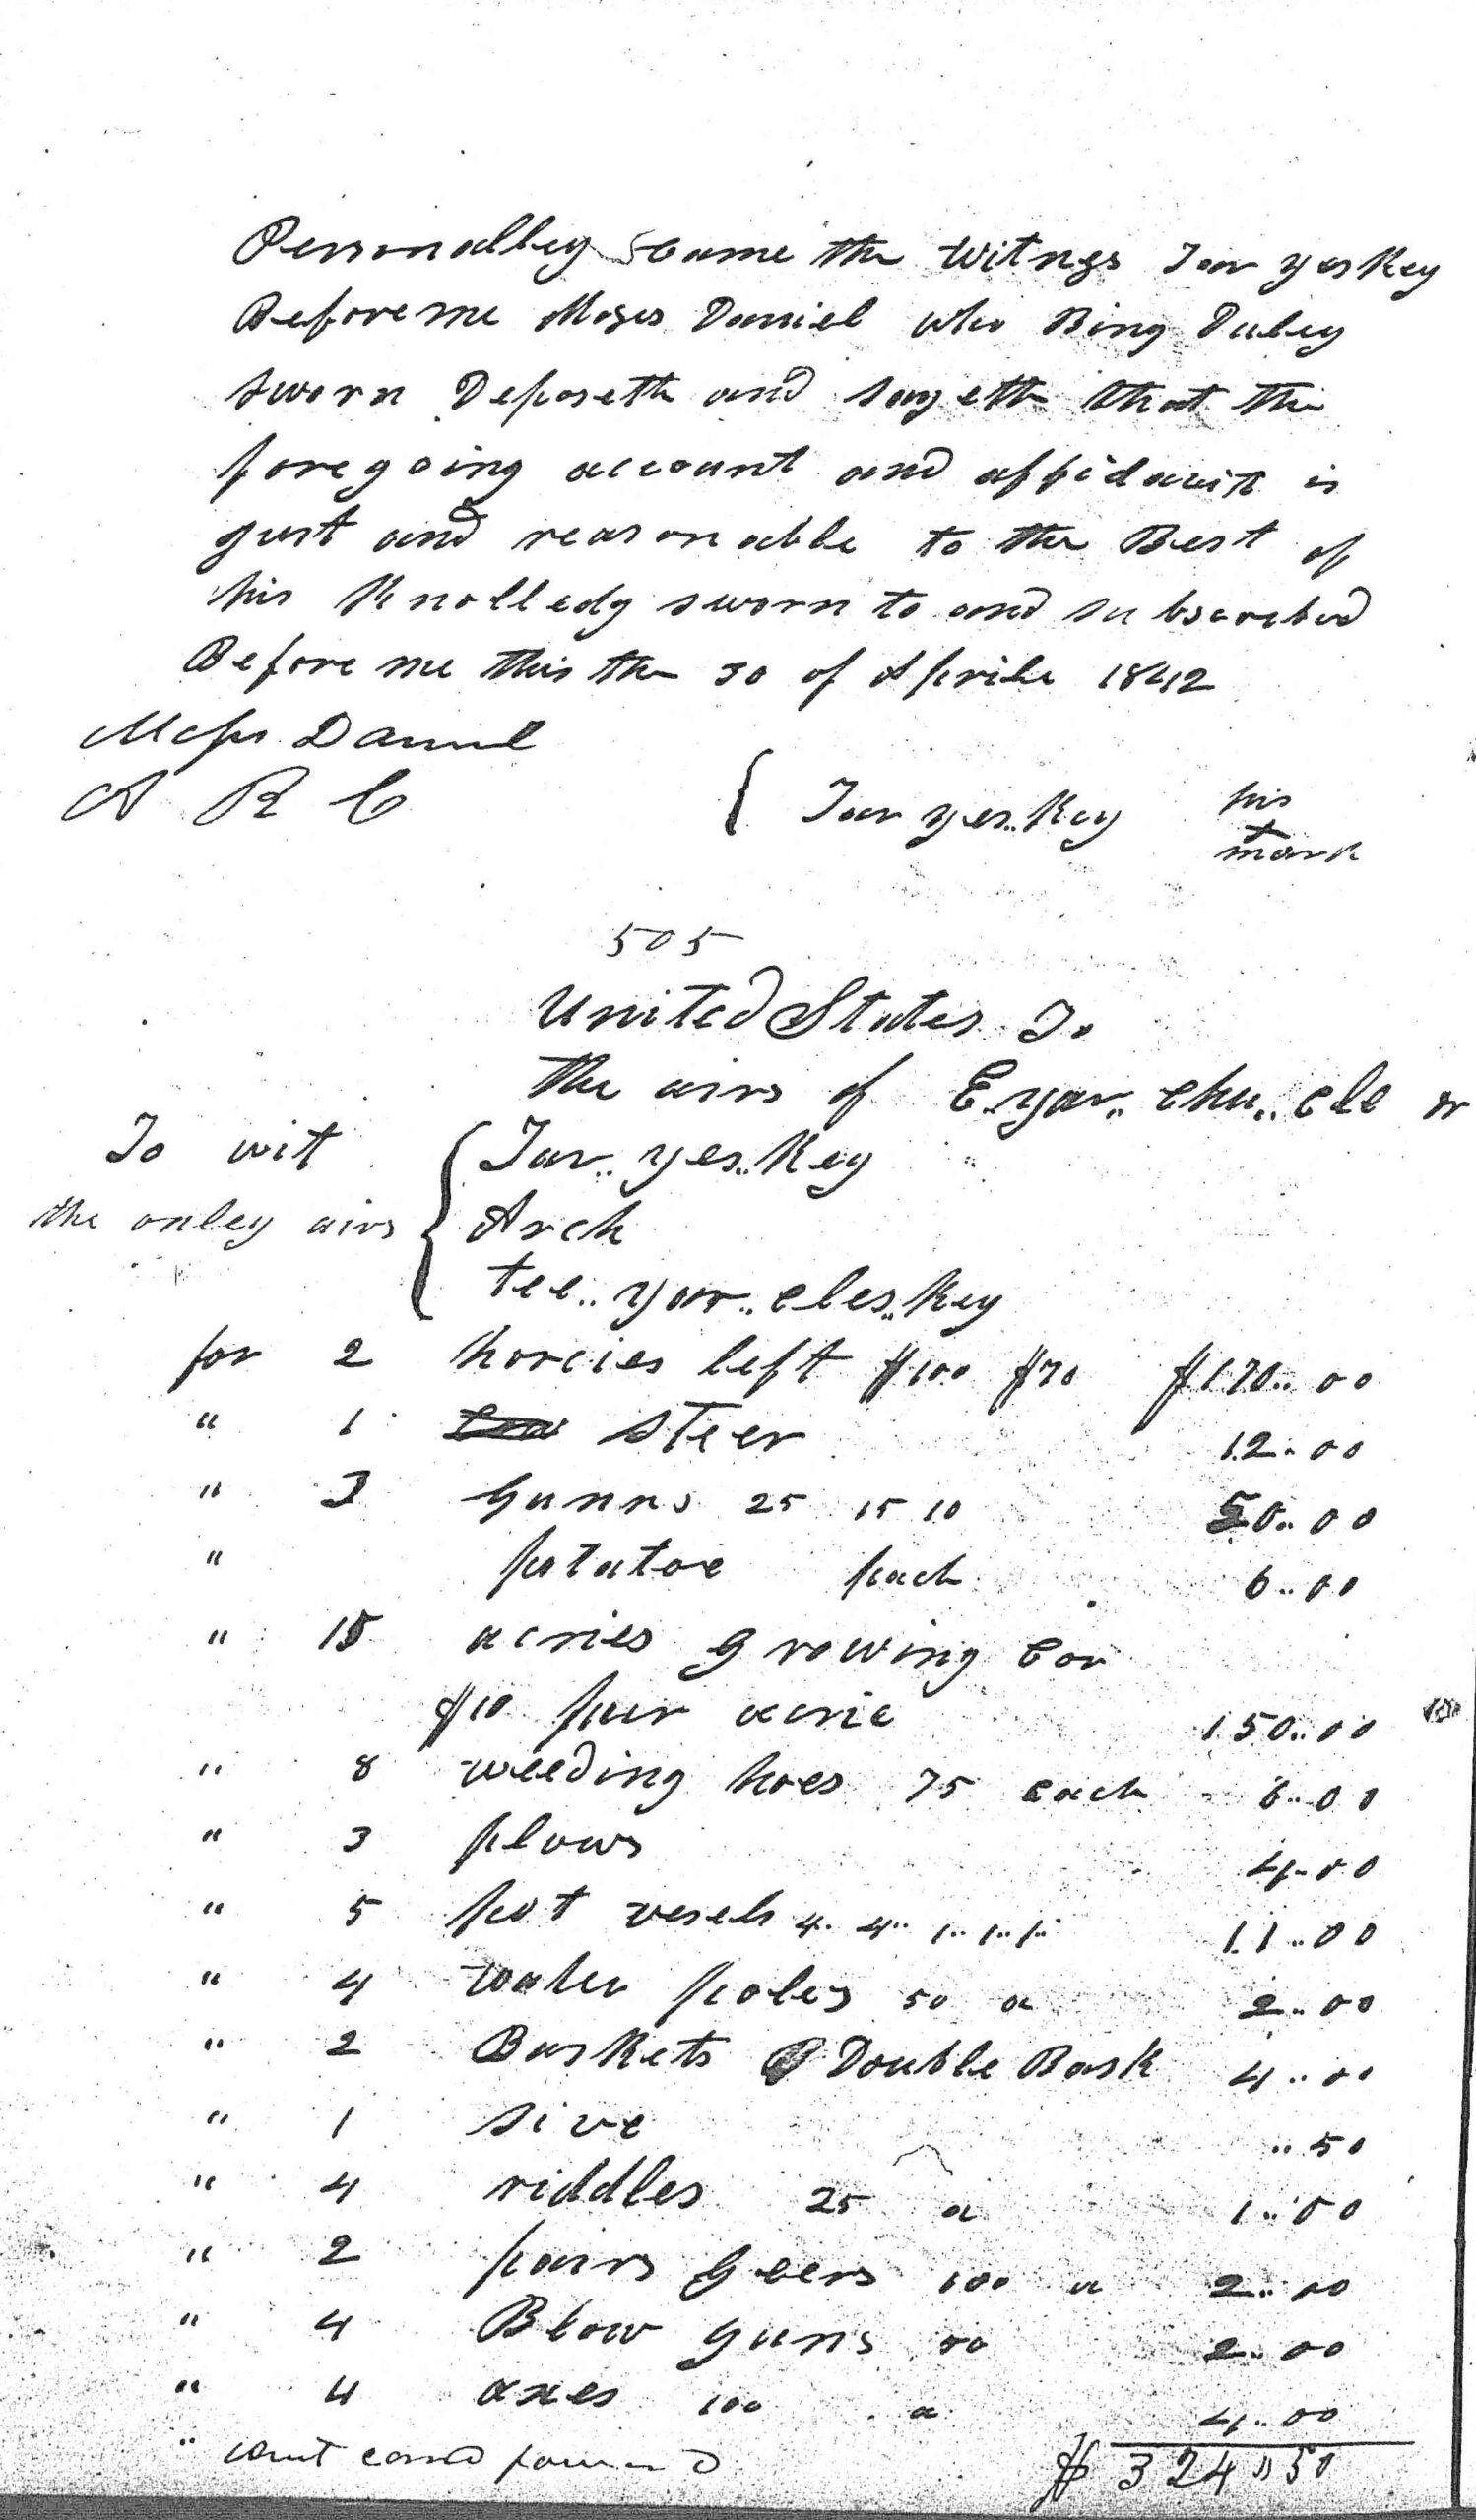 Personalley Came the Witness Tar yes Key
Before me Moses Daniel who Bing Duley
sworn Deposeth and sayeth that the
foregoing account and affidavit is
just and reasonable to the Best of
his Knolledg sworn to and subscrebed
Before me this the 30 of Aprile 1842
Moses Daniel
A R C
{ Tar yes.. Key his
+
mark
505
United States To
the airs of E.yar.. chu.. cle or
To wit { Tar.. yes.. Key
the onley airs Arch
tee.. yar.. cles.. Key
for 2 horcies left $100 $70 $170.. 00
" 1 steer 12.. 00
" 3 Gunns 25 15 10 50.. 00
" potatoe pach 6.. 00
" 15 acries growing Cor
$10 pur acrie 150.. 00
" 8 weeding hoes 75 each 6.. 00
" 3 plows 4.. 00
" 5 pot vesels 4.. 4.. 1.. 1.. 1.. 11.. 00
" 4 water poles 50 a 2.. 00
" 2 Baskets Double Bask 4.. 00
" 1 sive .. 50
" 4 riddles 25 a 1.. 00
" 2 pairs Geers 100 a 2.. 00
" 4 Blow guns 2.. 00
" 4 axes 100 a 4.. 00
" forward $ 324 " 50